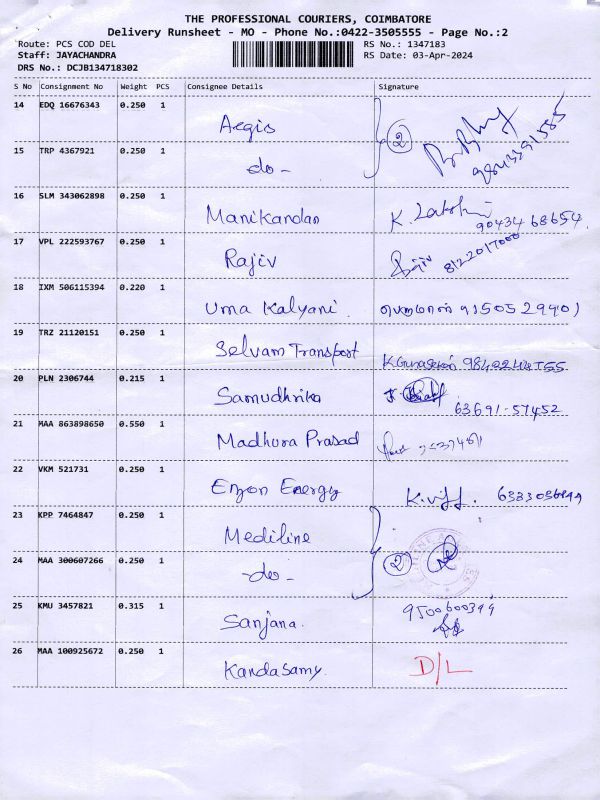 THE PROFESSIONAL COURIERS, COIMBATORE
Delivery Runsheet - MO - Phone No.:0422-3505555 - Page No.:2
Route: PCS COD DEL RS No.: 1347183
Staff: JAYACHANDRA RS Date: 03-Apr-2024
DRS No.: DCJB134718302
S No Consignment No Weight PCS Consignee Details Signature
14 EDQ 16676343 0.250 1 Aegis 2
15 TRP 4367921 0.250 1 -do-
16 SLM 343062898 0.250 1 Manikandan K. Lakshmi 90434 68654
17 VPL 222593767 0.250 1 Rajiv Rajiv 8122017000
18 IXM 506115394 0.220 1 Uma Kalyani பெருமாள் 9150529401
19 TRZ 21120151 0.250 1 Selvam Transport K Gunasekaran
20 PLN 2306744 0.215 1 Samudhrika 63691-57452
21 MAA 863898650 0.550 1 Madhura Prasad
22 VKM 521731 0.250 1 Enzon Energy
23 KPP 7464847 0.250 1 Mediline 2
24 MAA 300607266 0.250 1 -do-
25 KMU 3457821 0.315 1 Sanjana.
26 MAA 100925672 0.250 1 Kandasamy. D/L